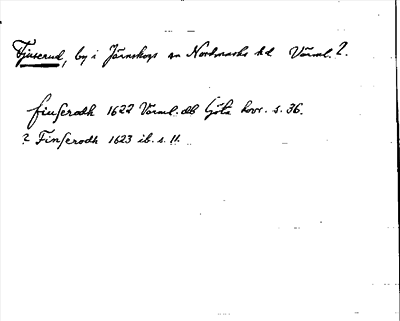 Fjuserud, by i Järnskogs sn Nordmarks hd Värml. l.
fiuſerodh 1622 Värml. db Göta hovr. s. 36.
? Finſerodh 1623 ib. s. 11.